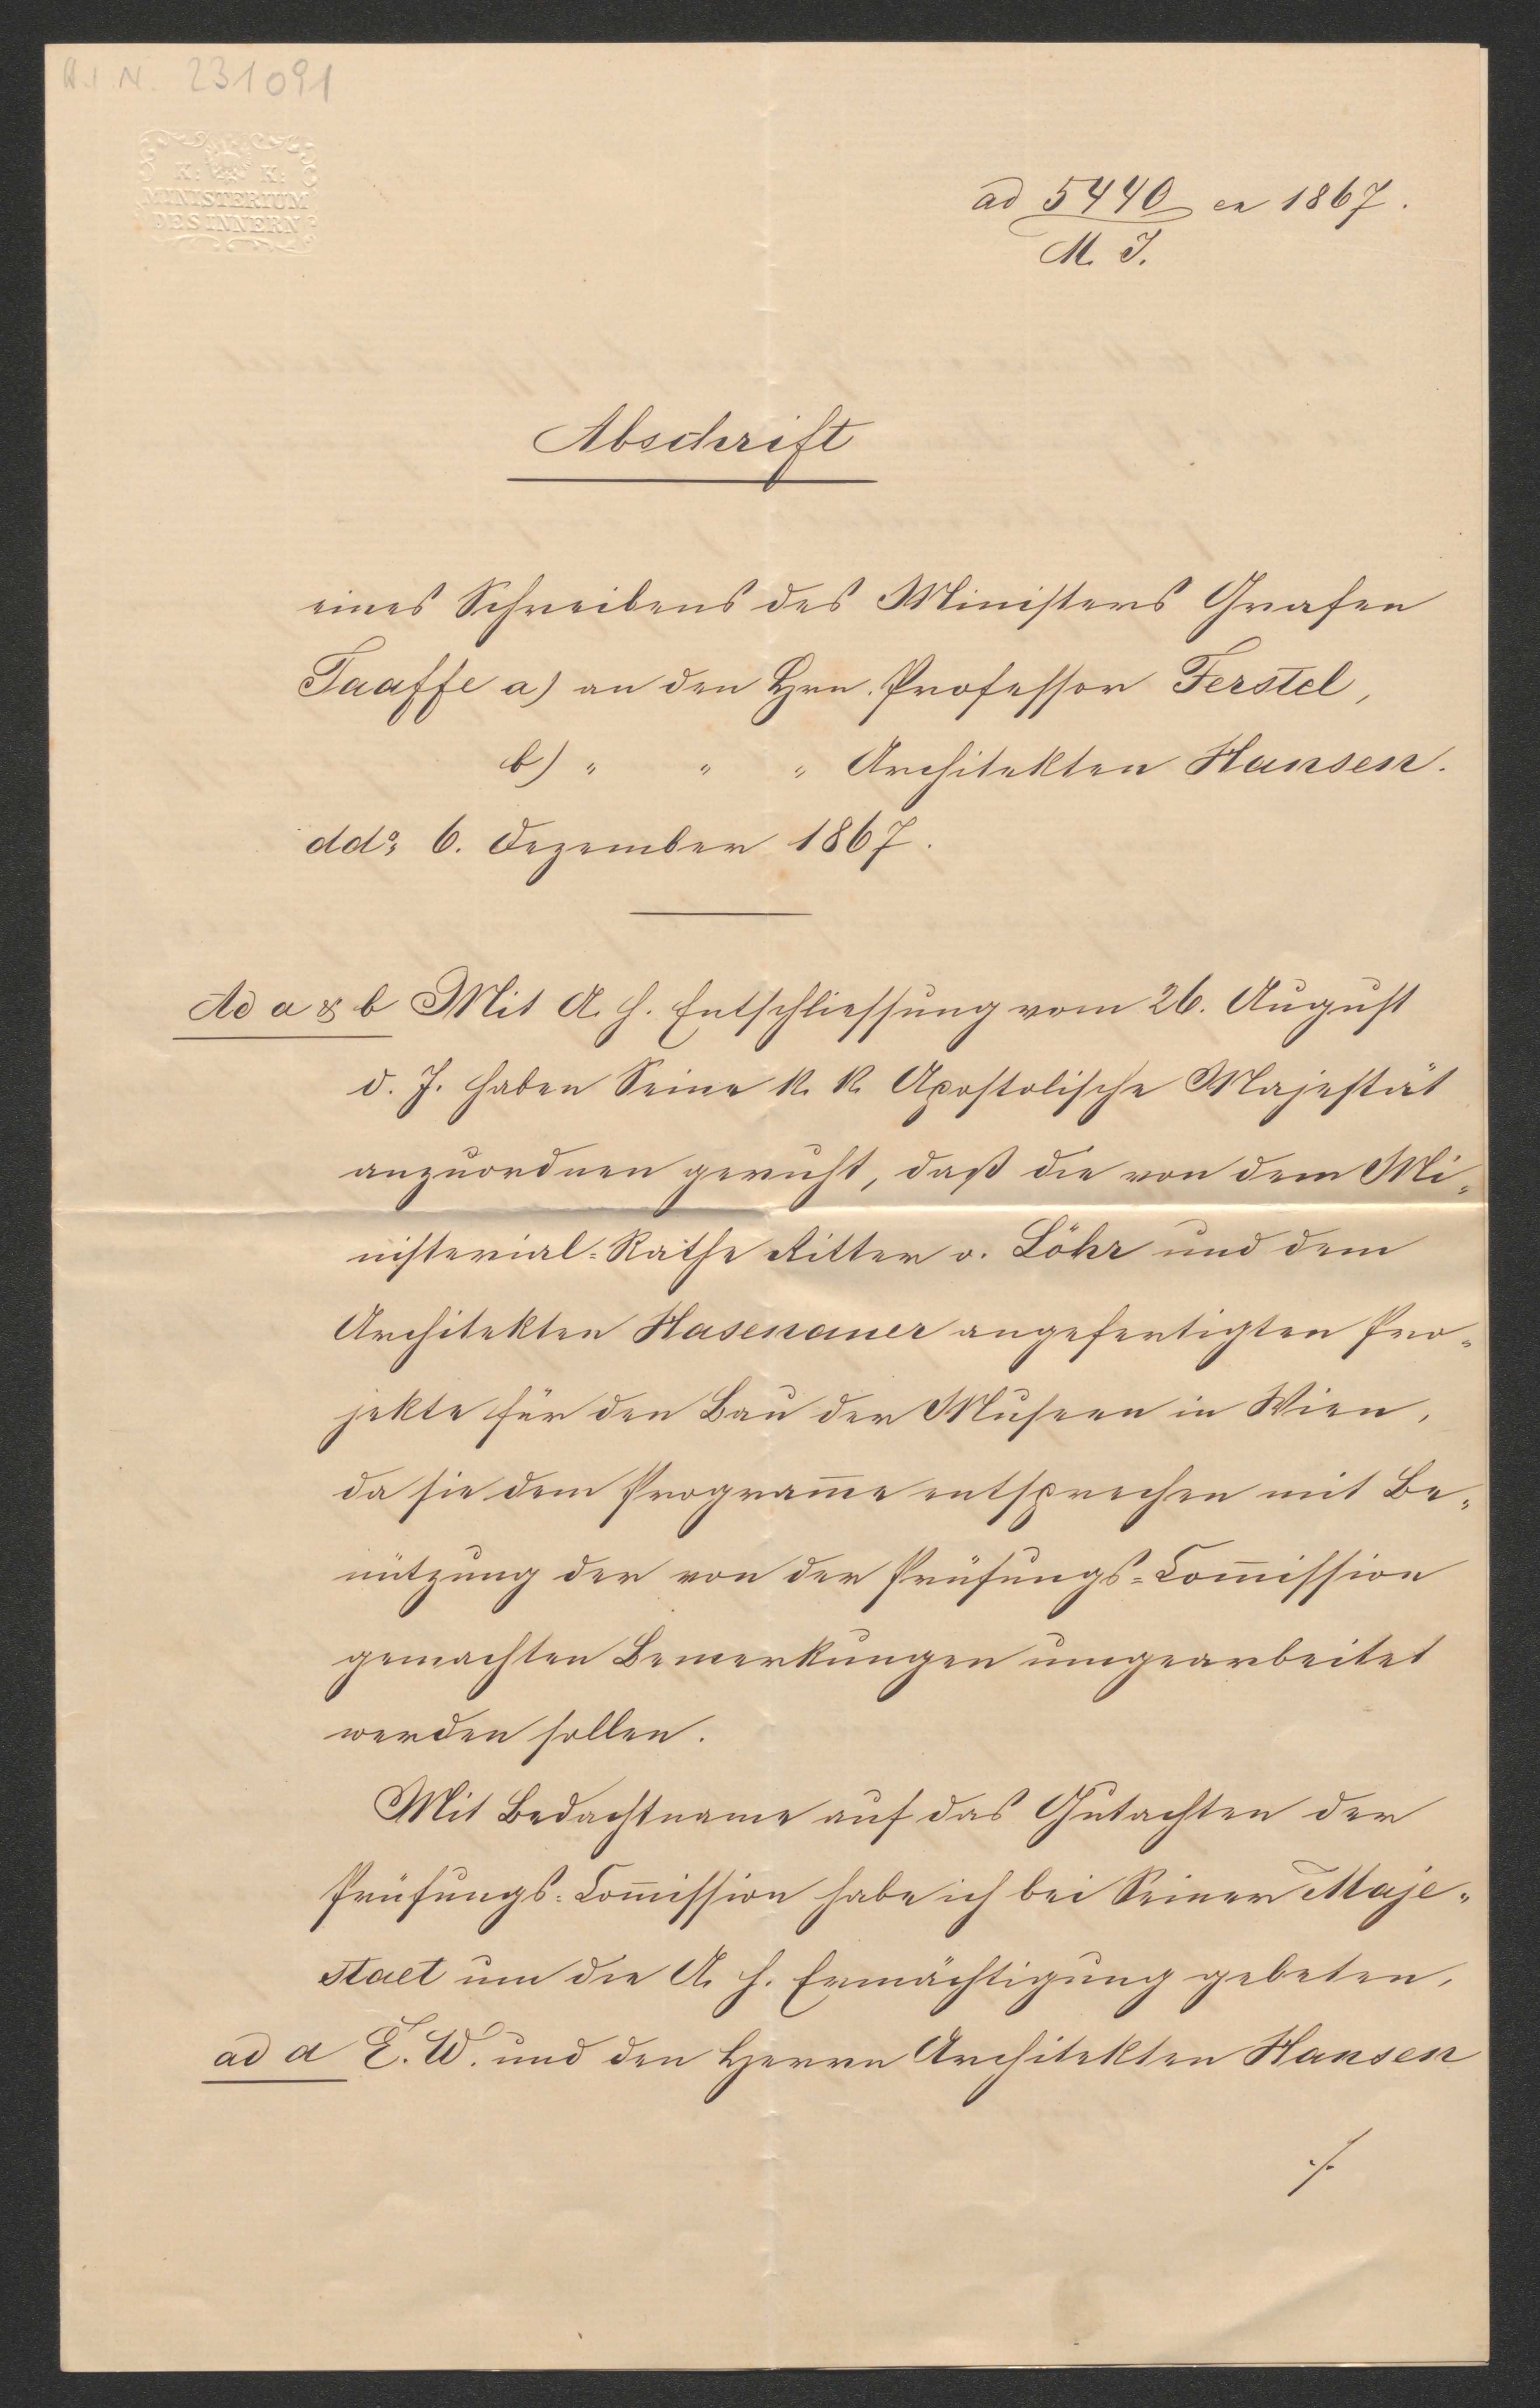 A.I.N. 231091
K: K:
MINISTERIUM
DES INNERN
ad 5440 ex 1867.
M. I.
Abschrift
eines Schreibens des Ministers Grafen
Taaffe a) an den Hrn. Professor Ferstel,
b) " " " Architekten Hansen.
ddo. 6. Dezember 1867.
Ad a & b Mit A. h. Entschliessung vom 26. August
d. J. haben Seine k. k. Apostolische Majestät
anzuordnen geruht, daß die von dem Mi-
nisterial-Rathe Ritter v. Löhr und dem
Architekten Hasenauer angefertigten Pro-
jekte für den Bau der Museen in Wien,
da sie dem Programm̅e entsprechen mit Be-
nützung der von der Prüfungs-Com̅ission
gemachten Bemerkungen umgearbeitet
werden sollen.
Mit Bedachtname auf das Gutachten der
Prüfungs-Com̅ission habe ich bei Seiner Maje-
staet um die A. h. Ermächtigung gebeten,
ad a E. W. und den Herrn Architekten Hansen
./.